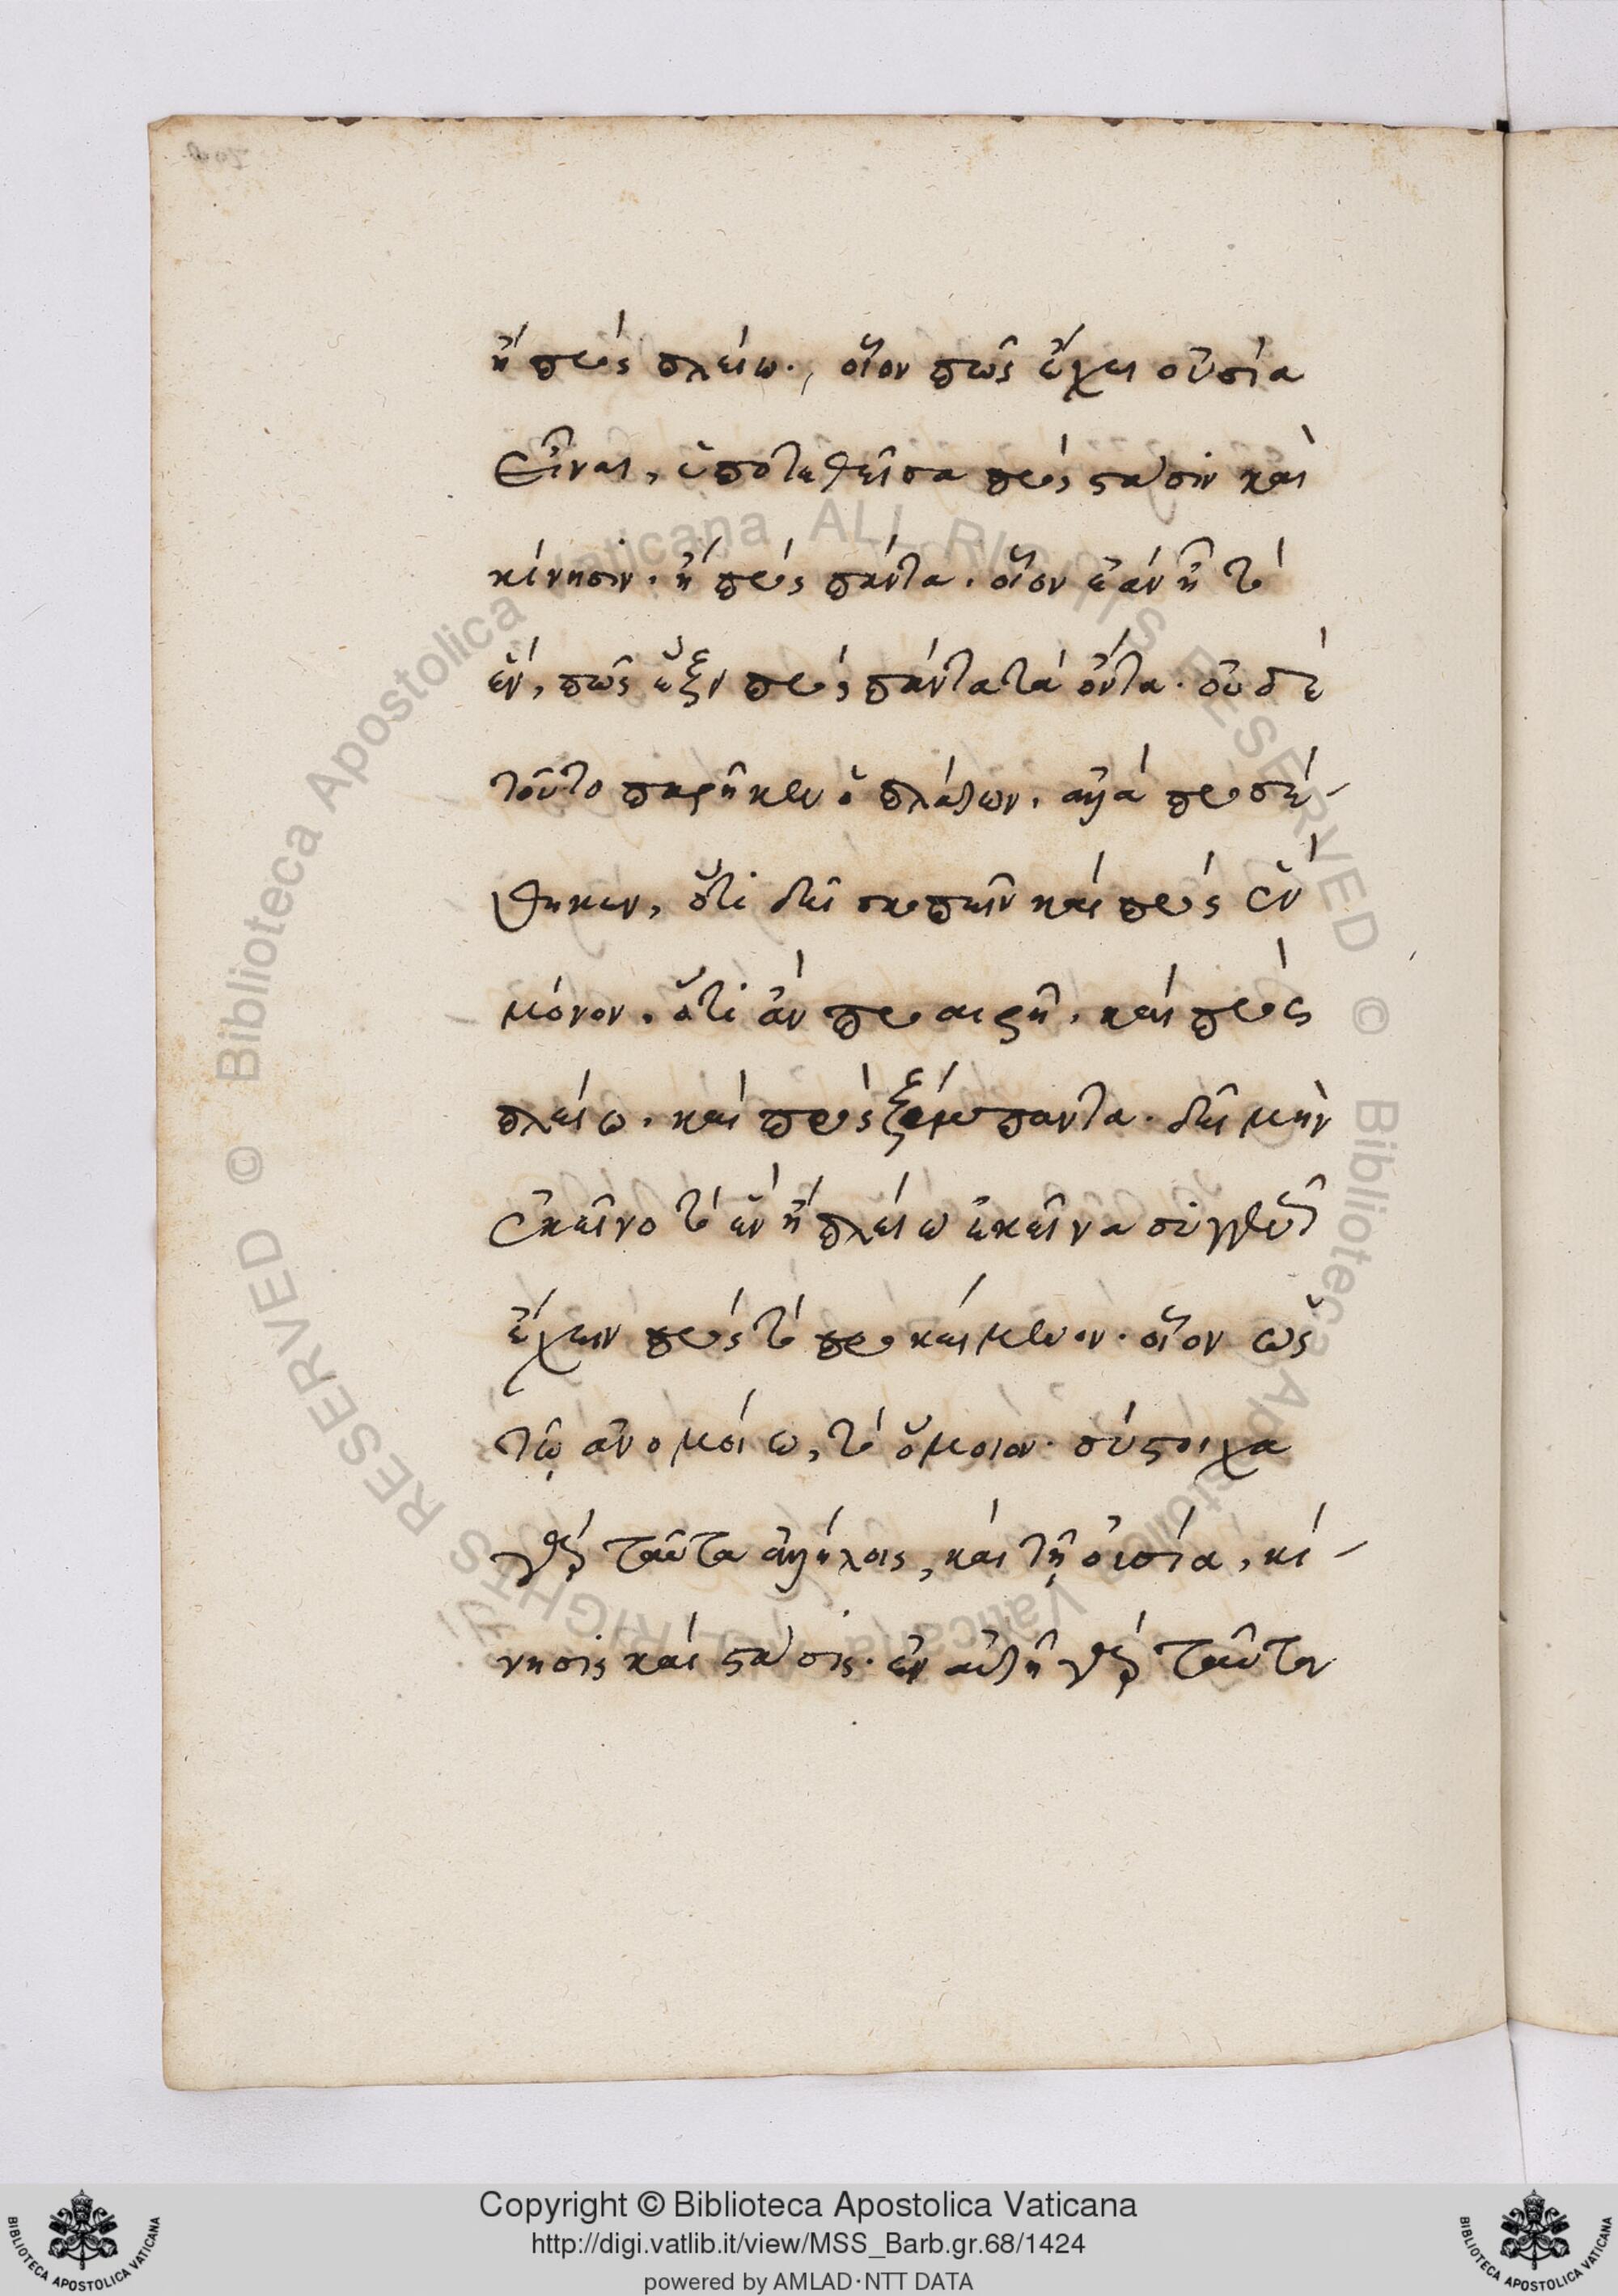 ἢ πρὸς πλείω· οἷον πῶς ἔχει οὐσία
εἶναι, ὑποτεθεῖσα πρὸς στάσιν καὶ
κίνησιν. ἢ πρὸς πάντα. οἷον ἐὰν ᾖ τὸ
ἕν, πῶς ἕξει πρὸς πάντα τὰ ὄντα. οὐδὲ
τοῦτο παρῆκεν ὁ πλάτων, ἀλλὰ προσέ-
θηκεν, ὅτι δεῖ σκοπεῖν καὶ πρὸς ἓν
μόνον. ὅτι ἂν προαιρῇ, καὶ πρὸς
πλείω. καὶ πρὸς ξύμπαντα. δεῖ μὴν
ἐκεῖνο τὸ ἓν ἢ πλείω ἐκεῖνα
ἔχειν πρὸς τὸ προκείμενον. οἷον ὡς
τῷ ἀνομοίω, τὸ ὅμοιον. σύστοιχα
γὰρ ταῦτα ἀλλήλοις, καὶ τῇ οὐσία, κί-
νησις καὶ στάσις. ἐν αὐτῇ γὰρ ταῦτα
Copyright © Biblioteca Apostolica Vaticana
http://digi.vatlib.it/view/MSS_Barb.gr.68/1424
powered by AMLAD·NTT DATA
BIBLIOTECA APOSTOLICA VATICANA
BIBLIOTECA APOSTOLICA VATICANA
© Biblioteca Apostolica Vaticana ALL RIGHTS RESERVED © Biblioteca Apostolica Vaticana ALL RIGHTS RESERVED